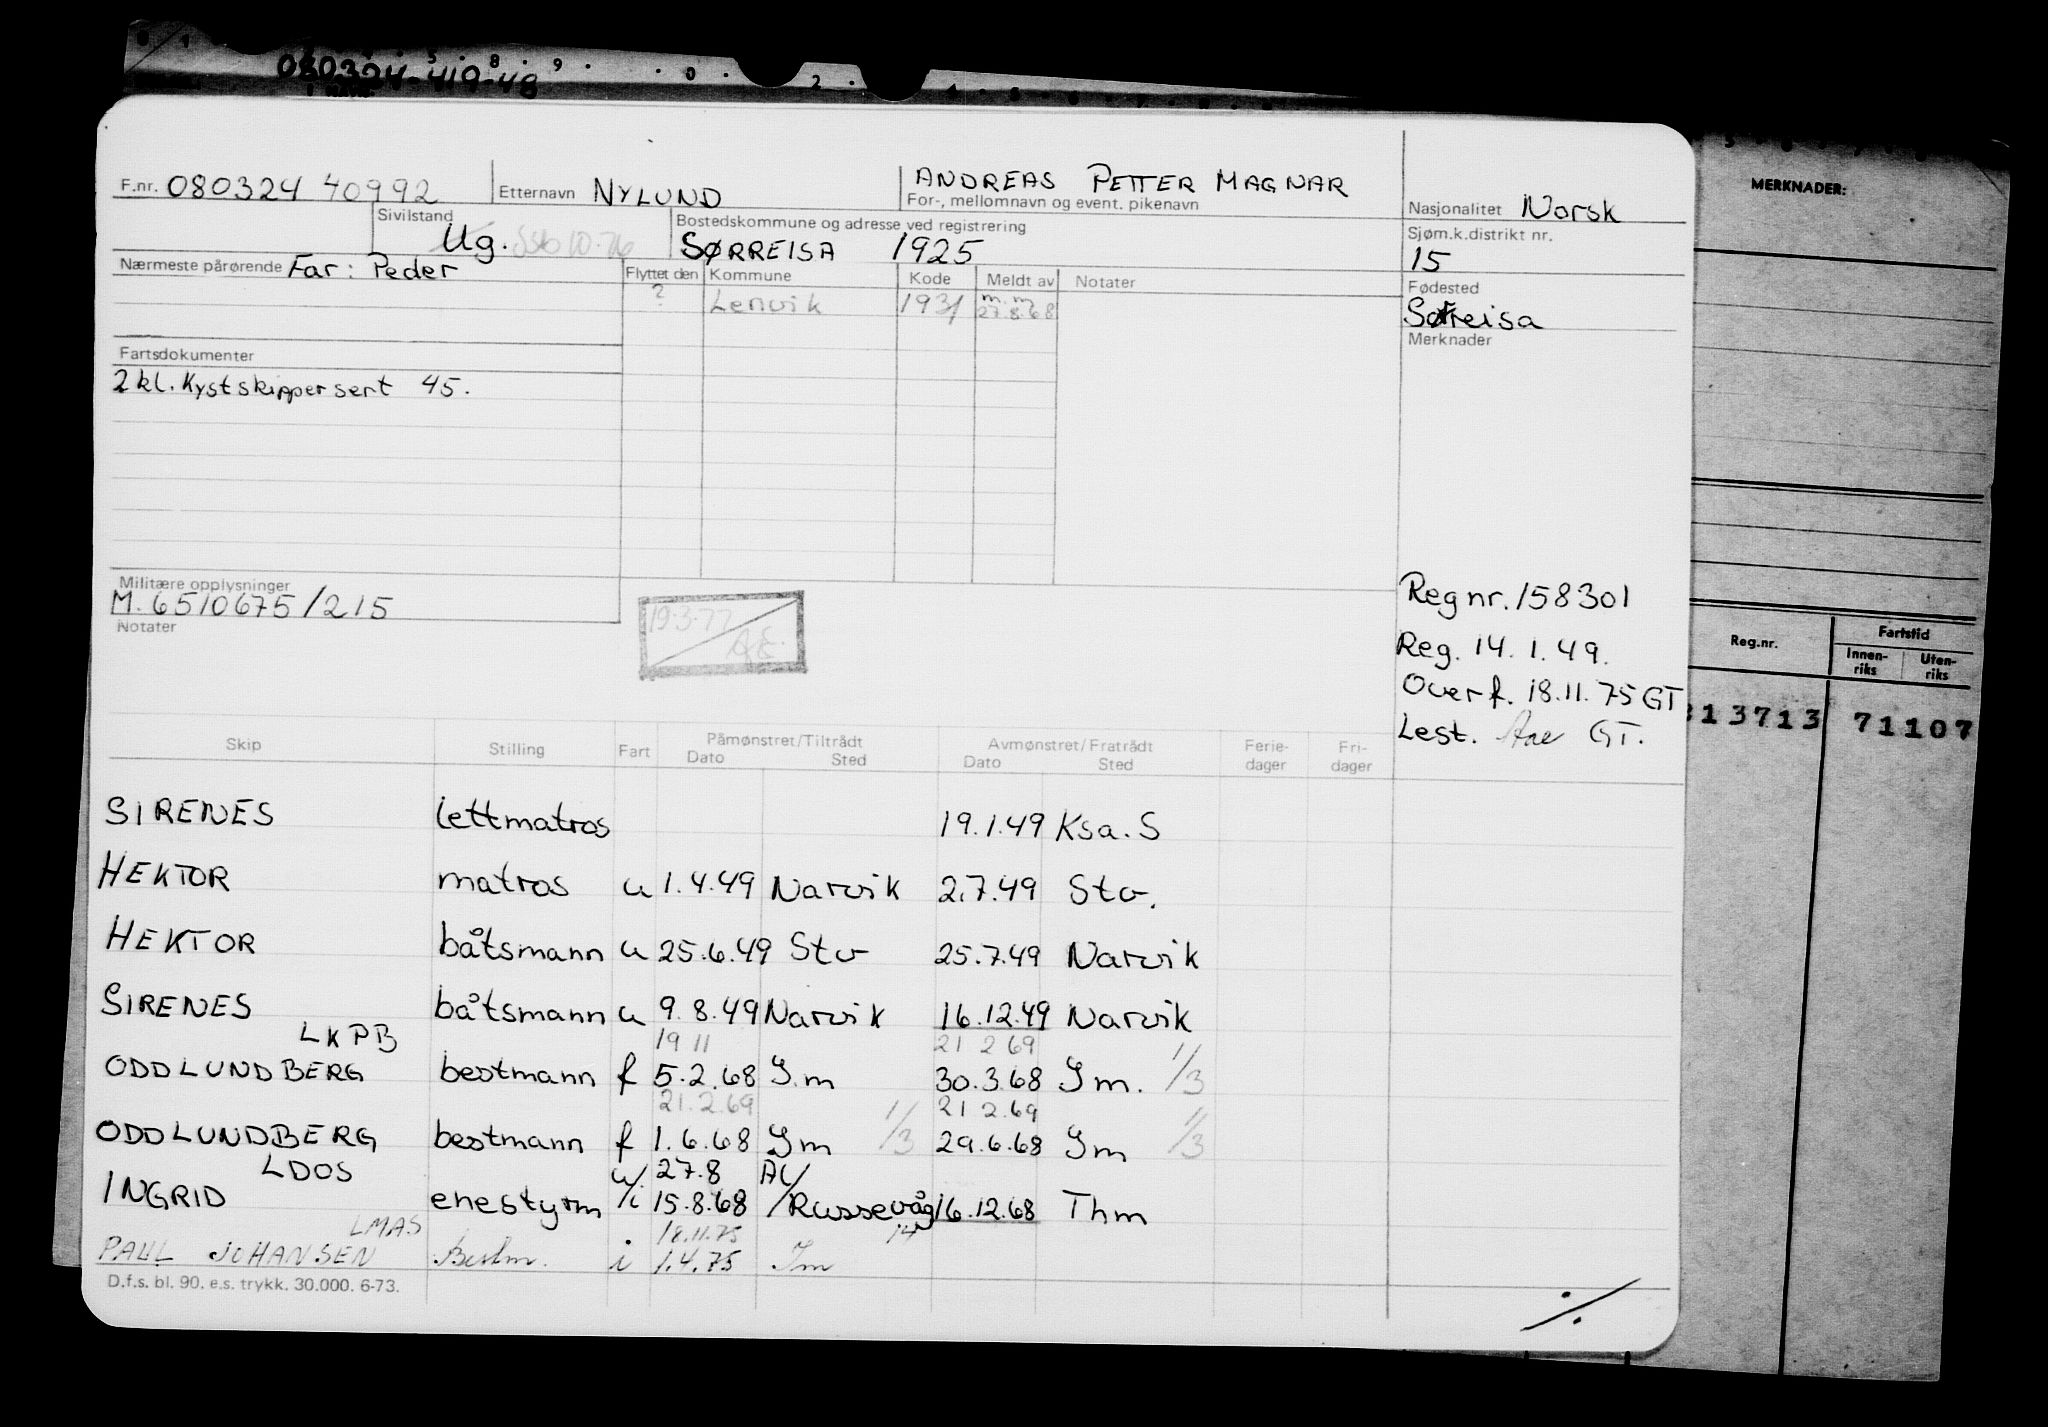 080324-419-48
MERKNADER:
F.nr. 080324 40992 Etternavn NYLUND ANDREAS PETTER MAGNAR
For-, mellomnavn og event. pikenavn
Nasjonalitet Norsk
Sivilstand Ug.
Bostedskommune og adresse ved registrering
SØRREISA 1925
Sjøm.k.distrikt nr.
15
Nærmeste pårørende Far: Peder
Flyttet den Kommune Kode Meldt av Notater
? Lenvik 1931 m.m 27.8.68
Fødested
Sørreisa
Merknader
Fartsdokumenter
2 kl. Kystskippersert 45.
Militære opplysninger
M. 6510675/215
Notater
19.3.77
Regnr. 158301
Reg. 14.1.49.
Overf. 18.11.75 GT
Lest. GT.
Reg.nr. Fartstid
Innen-riks Uten-riks
13713 71107
Skip Stilling Fart Påmønstret/Tiltrådt Avmønstret/Fratrådt Ferie-dager Fri-dager
Dato Sted Dato Sted
SIRENES lettmatros 19.1.49 Ksa. S
HEKTOR matros u 1.4.49 Narvik 2.7.49 Stv.
HEKTOR båtsmann u 25.6.49 Stv 25.7.49 Narvik
SIRENES båtsmann u 9.8.49 Narvik 16.12.49 Narvik
LKPB 19 11 21 2 69
ODD LUNDBERG bestmann f 5.2.68 Im 30.3.68 Im. 1/3
21.2.69 21 2.69
ODD LUNDBERG bestmann f 1.6.68 Im 1/3 29.6.68 Im 1/3
LDOS u/ 27.8 Al/
INGRID enestyrm /i 15.8.68 /Russevåg 16.12.68 Thm
LMAS 18.11.75 14
PAUL JOHANSEN Bestm. i 1.4.75 Im
D.f.s. bl. 90. e.s. trykk. 30.000. 6-73.
·/.